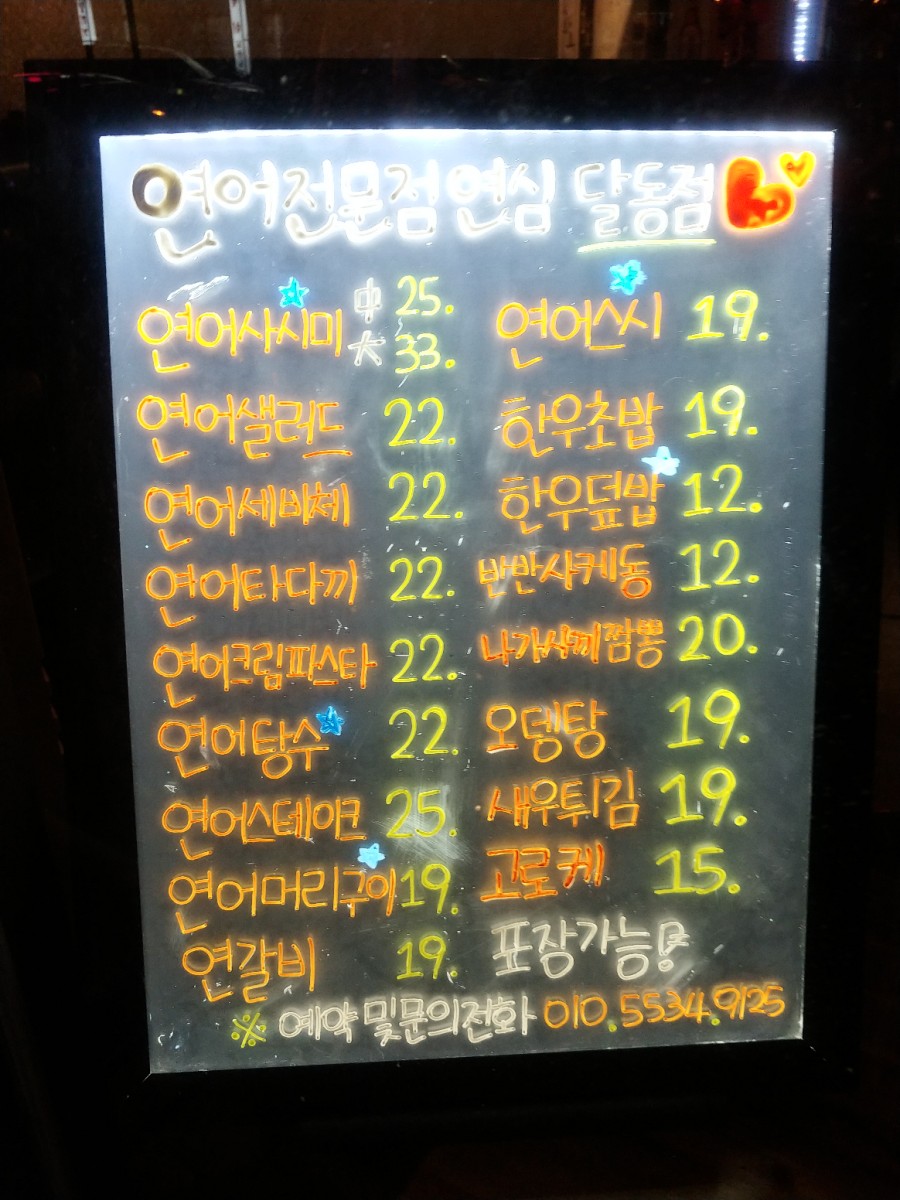 연어전문점 연심 달동점
연어사시미 中 25.
大 33.
연어샐러드 22.
연어세비체 22.
연어타다끼 22.
연어크림파스타 22.
연어탕수 22.
연어스테이크 25.
연어머리구이 19.
연갈비 19.
연어스시 19.
한우초밥 19.
한우덮밥 12.
반반사케동 12.
나가사끼짬뽕 20.
오뎅탕 19.
새우튀김 19.
고로케 15.
포장가능!
※ 예약 및 문의전화 010.5534.9125